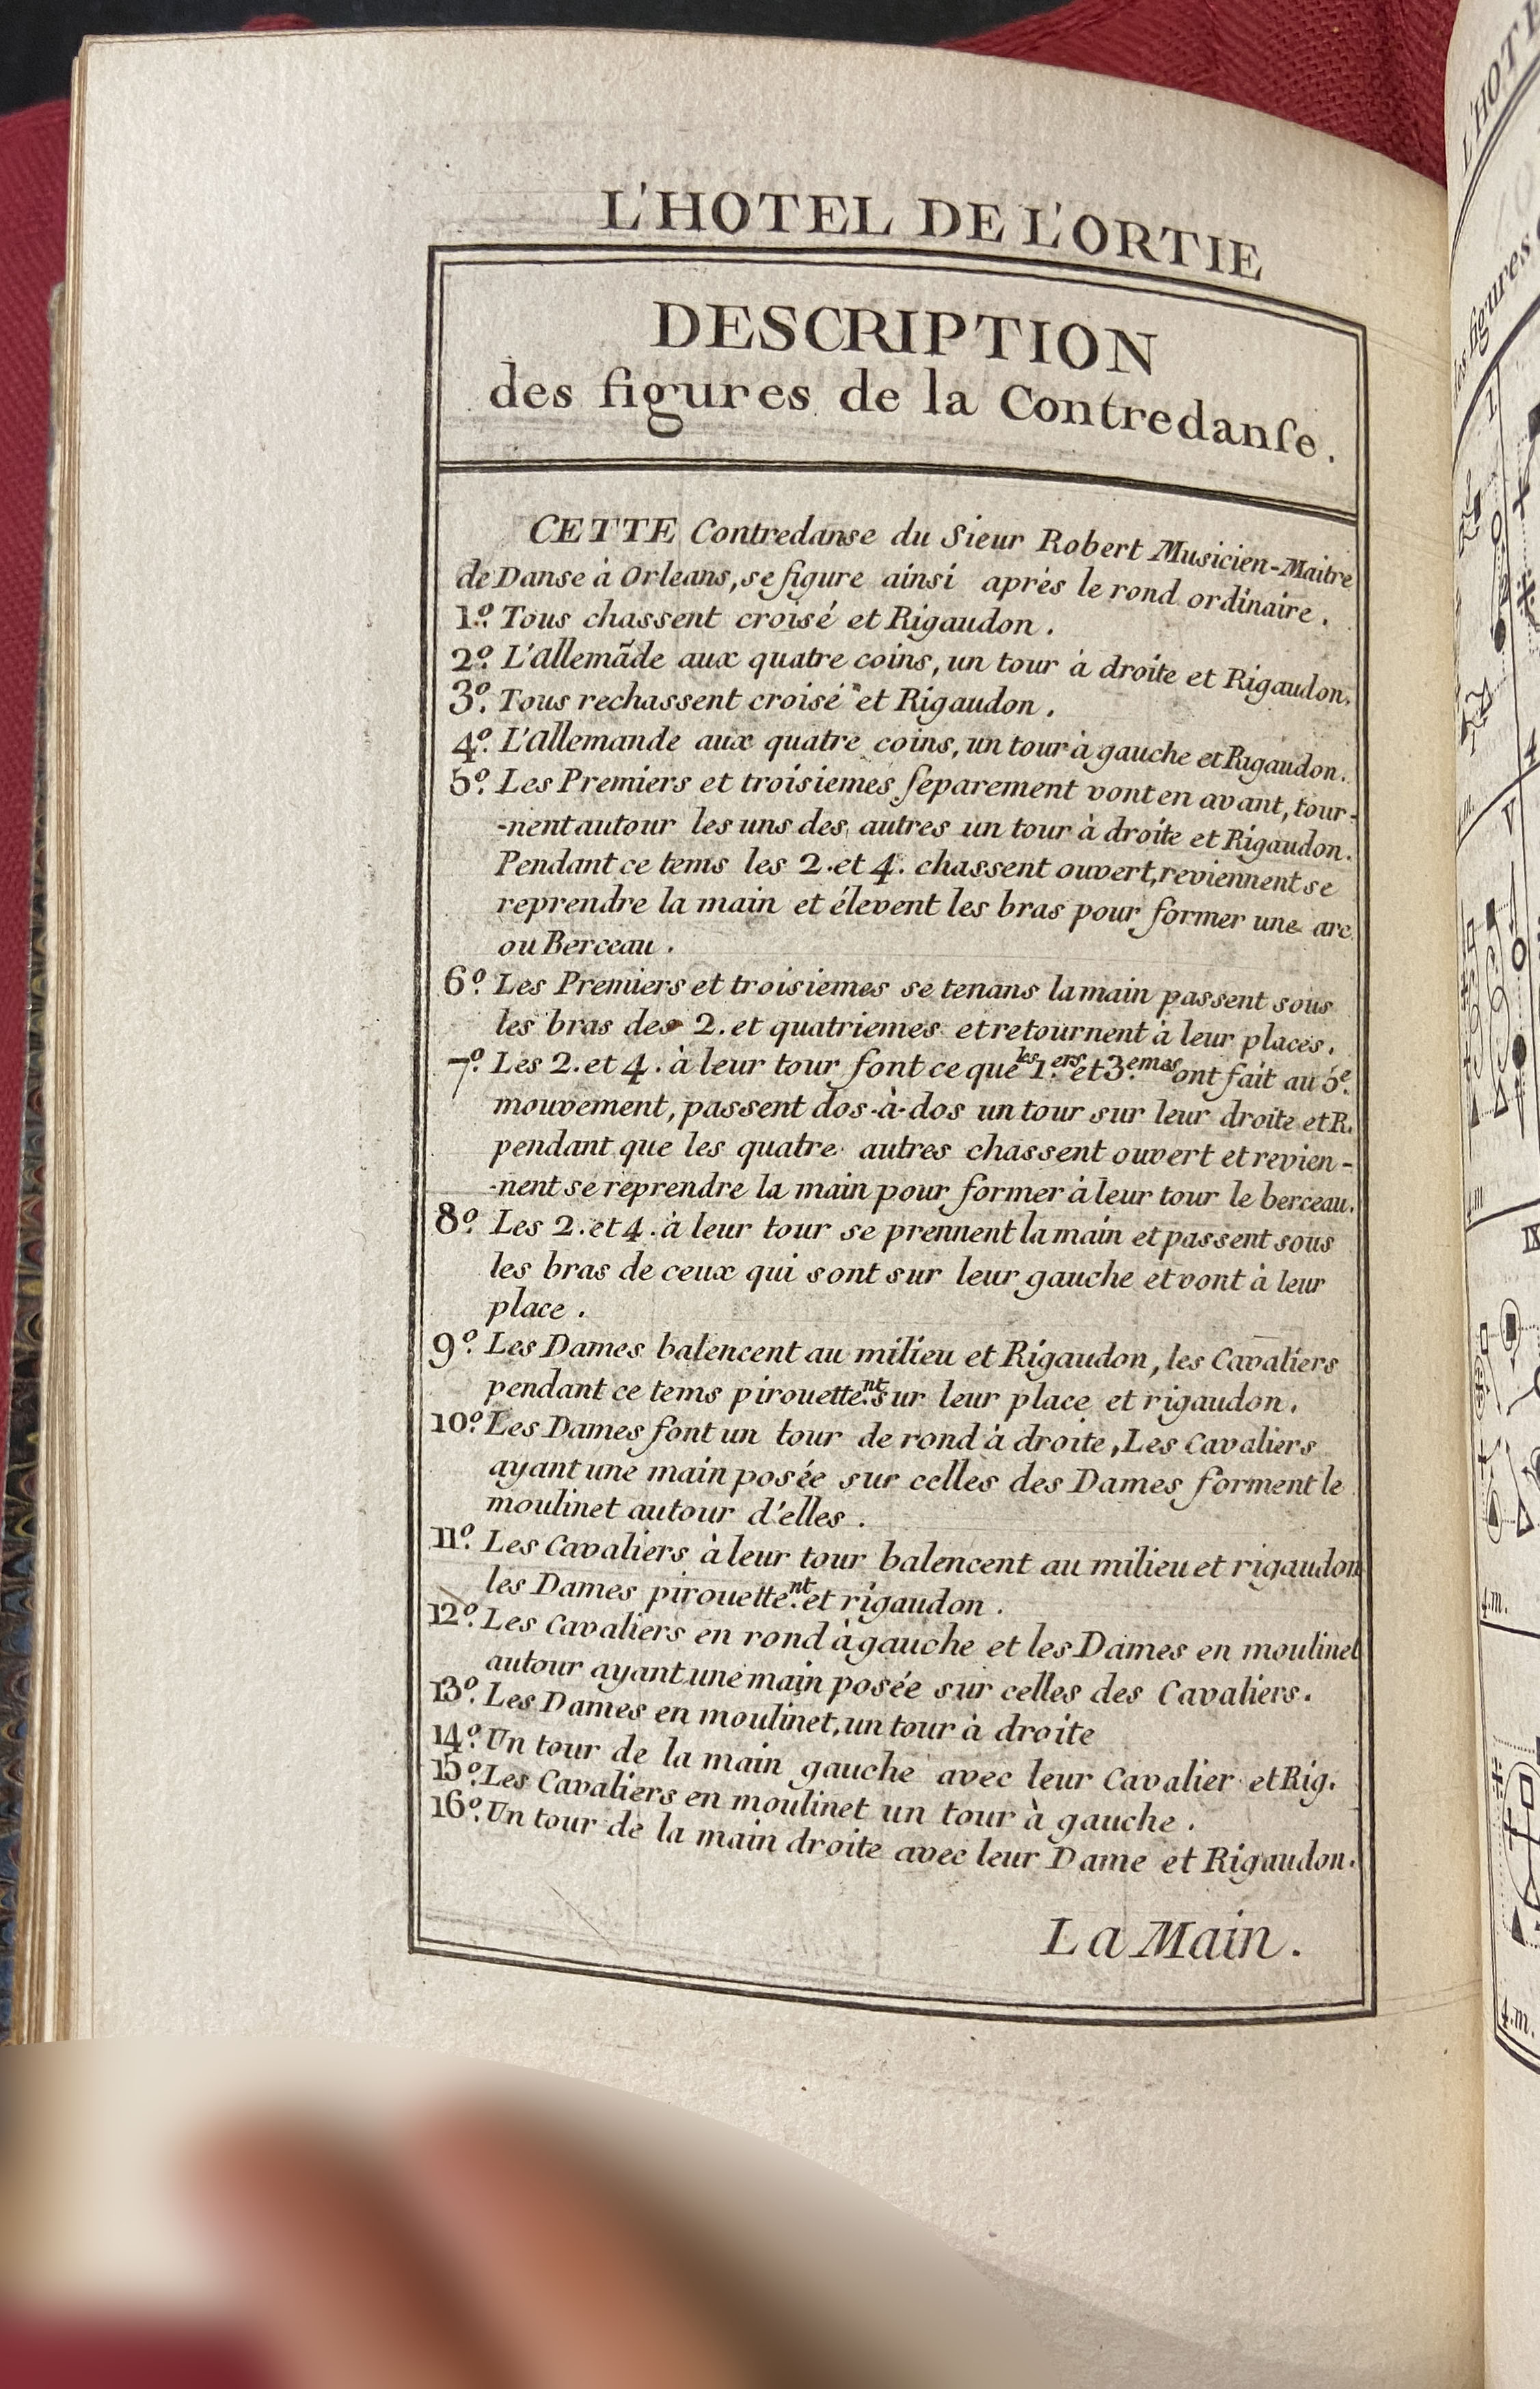 L'HOTEL DE L'ORTIE
DESCRIPTION
des figures de la Contredanſe.
CETTE Contredanse du Sieur Robert Musicien-Maitre
de Danse à Orleans, se figure ainsi aprés le rond ordinaire.
1.º Tous chassent croisé et Rigaudon.
2.º L'Allemãde aux quatre coins, un tour à droite et Rigaudon.
3.º Tous rechassent croisé et Rigaudon.
4.º L'Allemande aux quatre coins, un tour à gauche et Rigaudon.
5.º Les Premiers et troisiemes ſeparement vont en avant, tour-
-nent autour les uns des autres un tour à droite et Rigaudon.
Pendant ce tems les 2. et 4. chassent ouvert, reviennent se
reprendre la main et élevent les bras pour former une arc
ou Berceau.
6.º Les Premiers et troisiemes se tenans la main passent sous
les bras des 2. et quatriemes et retournent à leur places.
7.º Les 2. et 4. à leur tour font ce que les 1.ers et 3.emes ont fait au 5.e
mouvement, passent dos-à-dos un tour sur leur droite et R.
pendant que les quatre autres chassent ouvert et revien-
-nent se reprendre la main pour former à leur tour le berceau.
8.º Les 2. et 4. à leur tour se prennent la main et passent sous
les bras de ceux qui sont sur leur gauche et vont à leur
place.
9.º Les Dames balencent au milieu et Rigaudon, les Cavaliers
pendant ce tems pirouette.nt sur leur place et rigaudon.
10.º Les Dames font un tour de rond à droite, Les Cavaliers
ayant une main posée sur celles des Dames forment le
moulinet autour d'elles.
11.º Les Cavaliers à leur tour balencent au milieu et rigaudon
les Dames pirouette.nt et rigaudon.
12.º Les Cavaliers en rond à gauche et les Dames en moulinet
autour ayant une main posée sur celles des Cavaliers.
13.º Les Dames en moulinet, un tour à droite
14.º Un tour de la main gauche avec leur Cavalier et Rig.
15.º Les Cavaliers en moulinet un tour à gauche.
16.º Un tour de la main droite avec leur Dame et Rigaudon.
La Main.
L'HOTE
des figures
4.m.
4.m.